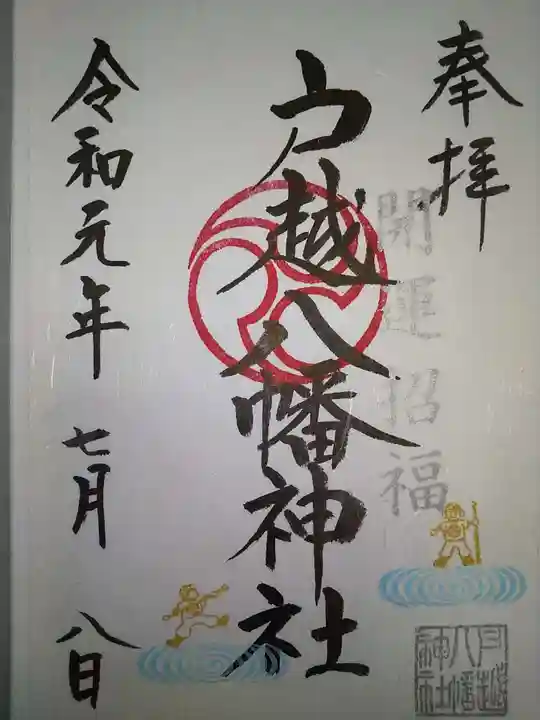 奉拝
開運招福
戸越八幡神社
令和元年 七月 八日
戸越
八幡
神社